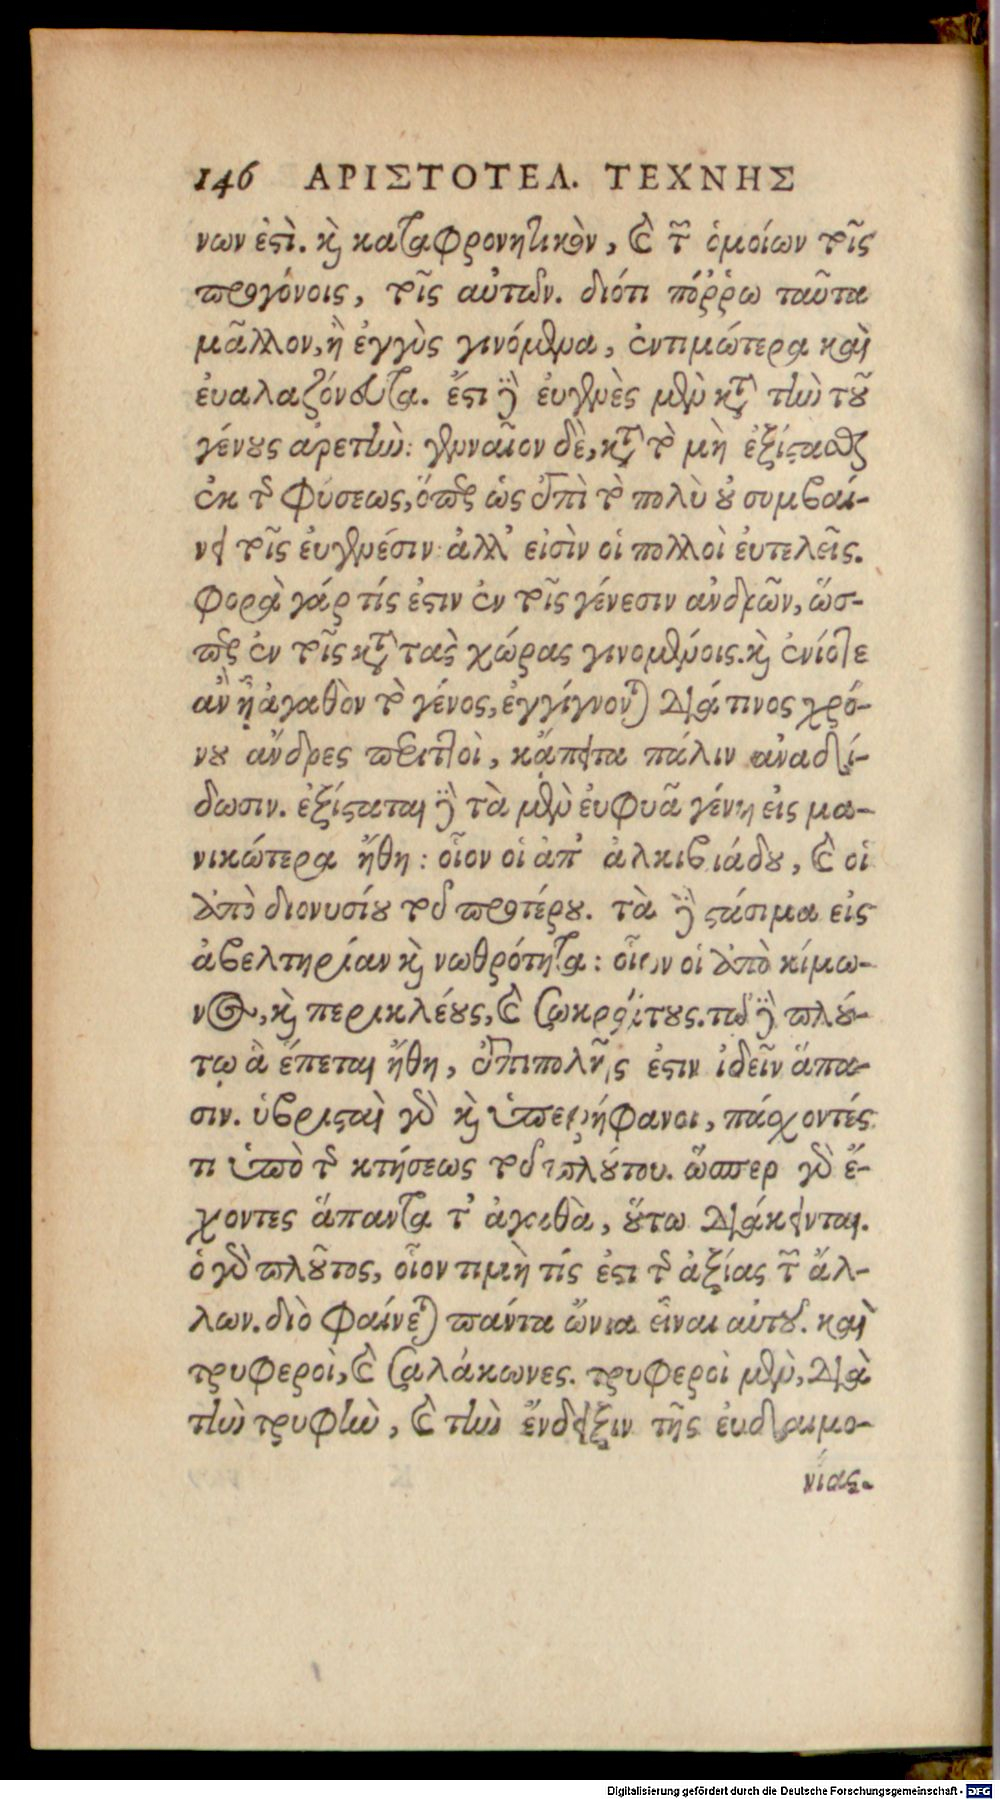 146 ΑΡΙΣΤΟΤΕΛ. ΤΕΧΝΗΣ
νων ἐστὶ. καὶ καταφρονητικὸν, καὶ τῶν ὁμοίων τοῖς
προγόνοις, τοῖς αὐτῶν. διότι πόῤῥω ταῦτα
μᾶλλον, ἢ ἐγγὺς γινόμενα, ἐντιμώτερα καὶ
ἐυαλαζόνευτα. ἔστι δὲ ἐυγενὲς μὲν κατὰ τὴν τοῦ
γένους ἀρετὴν: γενναῖον δὲ, κατὰ τὸ μὴ ἐξίστασθαι
ἐκ τῆς φύσεως, ὅπερ ὡς ἐπὶ τὸ πολὺ οὐ συμβαί-
νει τοῖς ἐυγενέσιν: ἀλλ' εἰσὶν οἱ πολλοὶ ἐυτελεῖς.
φορὰ γάρ τίς ἐστιν ἐν τοῖς γένεσιν ἀνδρῶν, ὥσ-
περ ἐν τοῖς κατὰ τὰς χώρας γινομένοις. καὶ ἐνίοτε
ἂν ᾖ ἀγαθὸν τὸ γένος, ἐγγίγνονται διά τινος χρό-
νου ἄνδρες περιττοὶ, κᾄπειτα πάλιν ἀναδί-
δωσιν. ἐξίσταται δὲ τὰ μὲν ἐυφυᾶ γένη εἰς μα-
νικώτερα ἤθη: οἷον οἱ ἀπ' ἀλκιβιάδου, καὶ οἱ
ἀπὸ διονυσίου τοῦ προτέρου. τὰ δὲ στάσιμα εἰς
ἀβελτηρίαν καὶ νωθρότητα: οἷον οἱ ἀπὸ κίμω-
νος, καὶ περικλέους, καὶ σωκράτους. τῷ δὲ πλού-
τῳ ἃ ἕπεται ἤθη, ἐπιπολῆς ἐστιν ἰδεῖν ἅπα-
σιν. ὑβρισταὶ γὰρ καὶ ὑπερήφανοι, πάσχοντές
τι ὑπὸ τῆς κτήσεως τοῦ πλούτου. ὥσπερ γὰρ ἔ-
χοντες ἅπαντα τ' ἀγαθὰ, οὕτω διάκεινται.
ὁ γὰρ πλοῦτος, οἷον τιμὴ τίς ἐστι τῆς ἀξίας τῶν ἄλ-
λων. διὸ φαίνεται πάντα ὤνια εἶναι αὐτοῦ. καὶ
τρυφεροὶ, καὶ σαλάκωνες. τρυφεροὶ μὲν, διὰ
τὴν τρυφὴν, καὶ τὴν ἔνδειξιν τῆς ἐυδαιμο-
νίας.
Digitalisierung gefördert durch die Deutsche Forschungsgemeinschaft - DFG